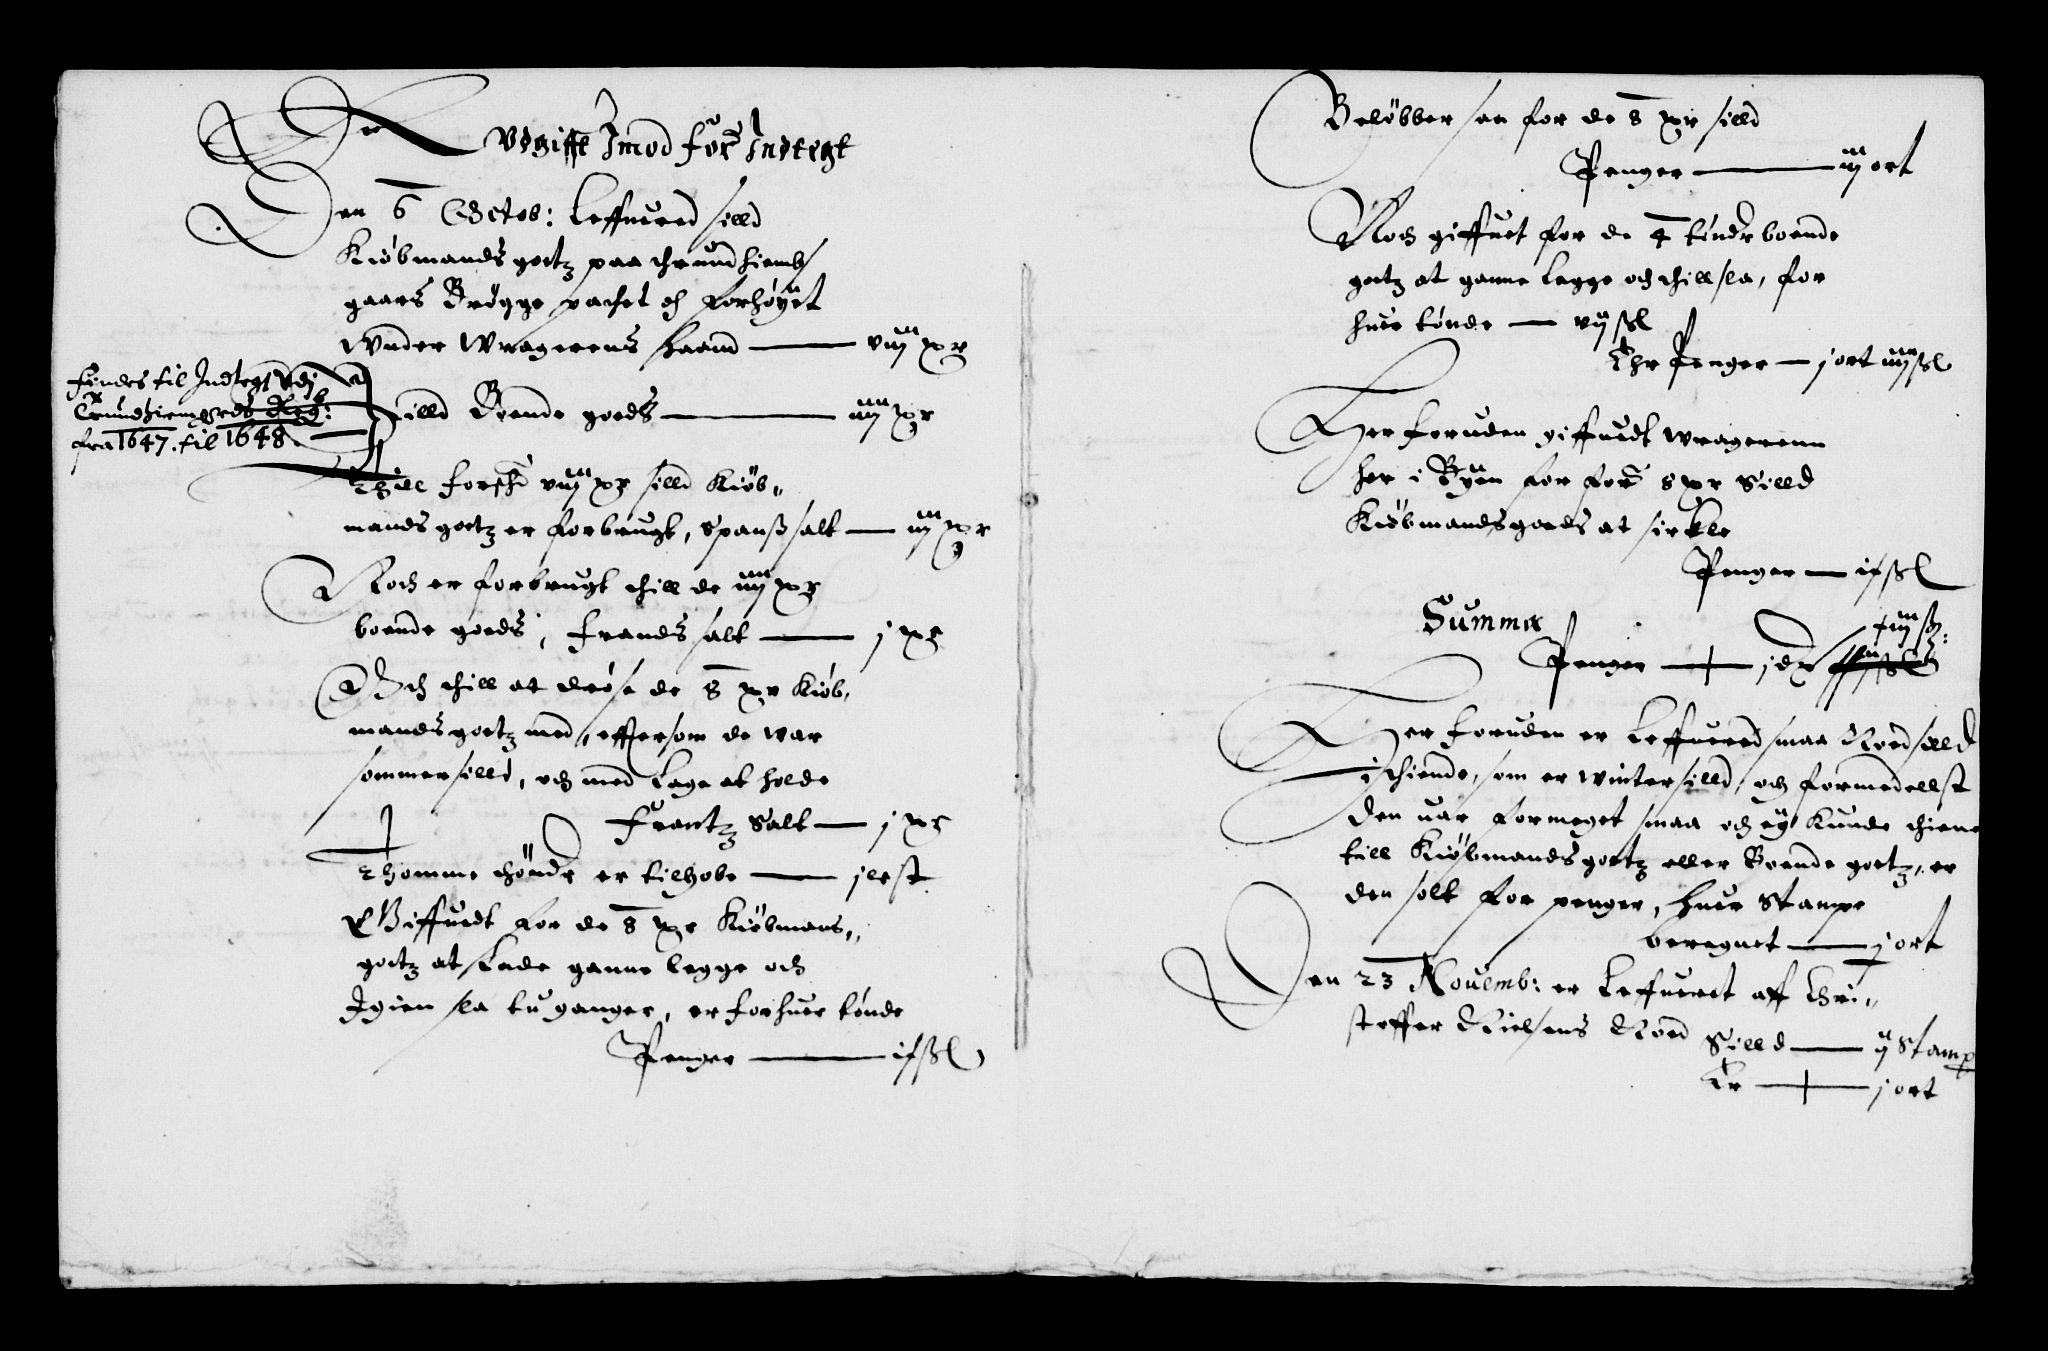 Er Vdgifft Imod for: Indtegt
Den 6 Octob: Leffuered silld
Kiöbmandsgodtz paa thrundhiembs
gaars Brögge pachet och forhöyet
Vnder Wragerens haand — viij tr
findes til Indtegt Vdj
Trundhiemgrds Reg:
fra 1647. til 1648. —
silld Bonde goeds — iiij tr
Thill forschr viij tr silld Kiöb-
mandsgodtz er forbrugt, Spansß salt — iij tr
Noch er forbrugt thill de iiij tr
bonde goeds, frands salt — j tr
Och thill at dröse de 8 tr Kiöb,
mandsgodtz med, effersom de war
sommersilld, och med Lage at holde
Frantz Salt — j tr
Thomme thöndr er tilhobe — j lest
Giffuedt for de 8 tr Kiöbmans,,
godtz at Lade ganne legge och
Igien sla tu ganger, er for huer tönde
Penger — i ß
Belöbber saa for de 8 tr silld
Penger — iij ort
Noch giffuet for de 4 töndr bonde
godtz at ganne legge och thill sla, for
huer tönde — vij ß
Er Penger — j ort iiij ß
Her foruden giffuedt wragerenn
her i Byen for for: 8 tr Silld
Kiöbmandsgoeds at sirkle
Penger — ß
Summa
Penger — j dr
Her foruden er Leffuered smaa Noed silld
i thiende, som er wintersilld, och formedellst
den uar formeget smaa och ey Kunde thiene
till Kiöbmandsgodtz eller Bonde godtz, er
den solt for penger, huer Stampe
beregnet — j ort
Den 23 Nouemb: er Leffueret aff Chri,,
stoffer Nielsens Noed Silld — ij Stamp
Er — j ort